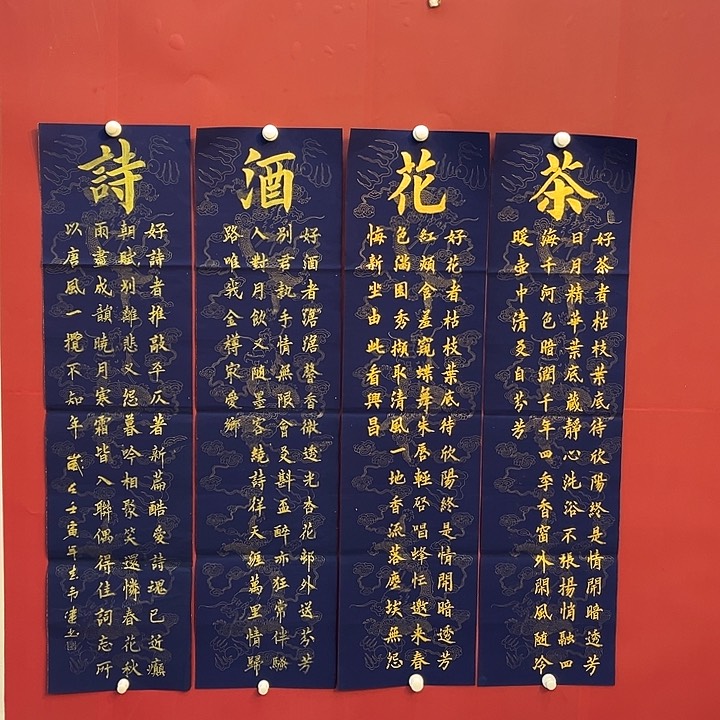 茶
好茶者枯枝葉底待欣陽終是情開暗透芳
日月精華葉底蔵靜心洗浴不張揚悄融四
海千河色暗潤千年四季香窗外閑風随冷
暖壺中清友自芬芳
花
好花者枯枝葉底待欣陽終是情開暗透芳
紅頰含羞窺蝶舞朱唇輕啓唱蜂忙邀来春
色滿園秀擷取清風一地香流落塵埃無怨
悔新生由此看興昌
酒
好酒者澹澹馨香微透光杏花邨外送芬芳
別君執手情無限會友斟盃醉亦狂常伴騷
人對月飲又隨墨客繞詩徉天涯萬里情歸
路唯我金樽家愛鄉
詩
好詩者推敲平仄著新篇酷愛詩瑰已近癲
朝賦別離悲又怨暮吟相聚笑還憐春花秋
雨盡成韻曉月寒霜皆入聯偶得佳詞忘所
以唐風一攬不知年 歲在壬寅年